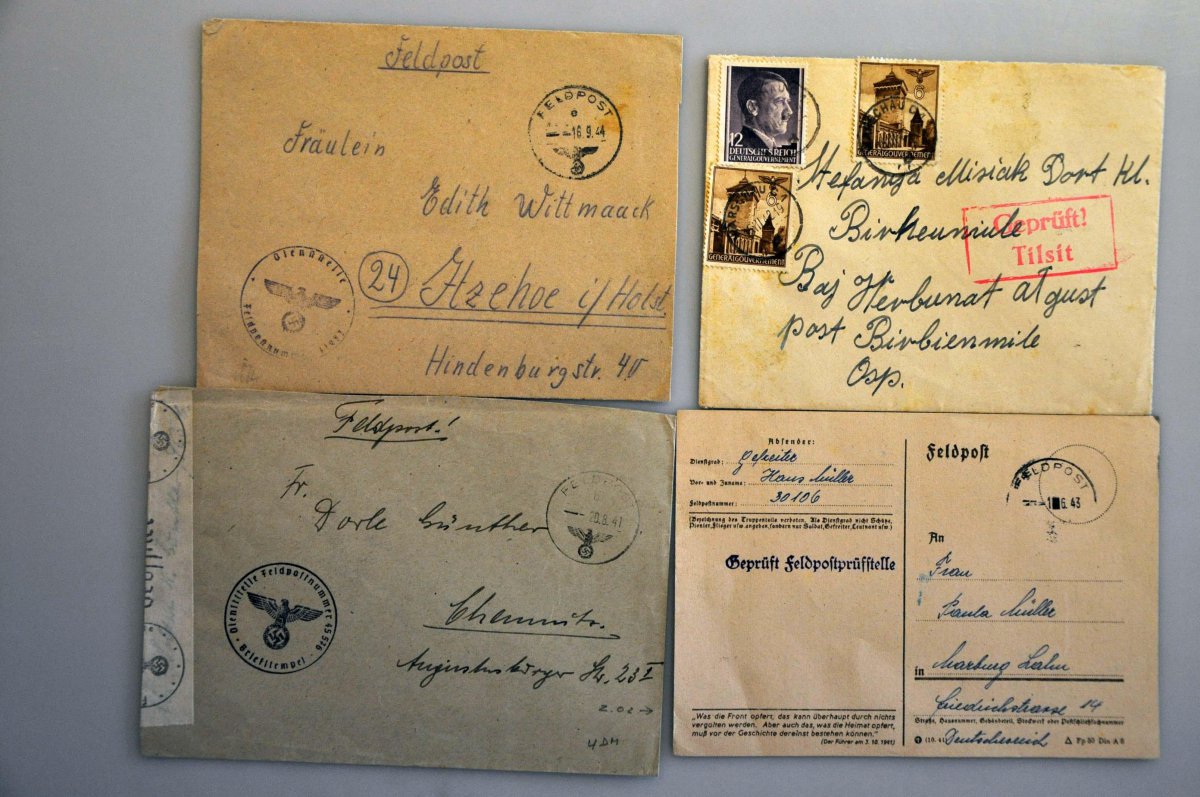 Feldpost
FELDPOST
e
16.9.44
Fräulein
Edith Wittmaack
24 Itzehoe i/Holst
Hindenburgstr. 40
Dienststelle
Feldpostnummer
12
DEUTSCHES REICH
GENERALGOUVERNEMENT
6
GENERALGOUVERNEMENT
6
GENERALGOUVERNEMENT
WARSCHAU C1
Stefanija Misiak Dort Kl.
Birkenmile
Geprüft!
Tilsit
Baj Herbunat August
post Birbienmile
Osp.
Feldpost!
Fr.
Dorle Günther
FELDPOST
b
20.8.41
Chemnitz.
Augustusburger Str. 23 I
Dienststelle Feldpostnummer 45 536
Briefstempel
Geöffnet
2.02 →
4 DM
Absender:
Dienstgrad: Gefreiter
Vor- und Zuname: Hans Müller
Feldpostnummer: 30106
(Bezeichnung des Truppenteils verboten. Als Dienstgrad nicht Schütze,
Pionier, Flieger usw. angeben, sondern nur Soldat, Gefreiter, Leutnant usw.)
Geprüft Feldpostprüfstelle
"Was die Front opfert, das kann überhaupt durch nichts
vergolten werden. Aber auch das, was die Heimat opfert,
muß vor der Geschichte dereinst bestehen können."
(Der Führer am 3. 10. 1941)
Feldpost
FELDPOST
6.43
An
Frau
Paula Müller
in Marburg Lahn
Friedrichstrasse 14
Straße, Hausnummer, Gebäudeteil, Stockwerk oder Postschließfachnummer
(10. 41) Deutschesreich
Fp 50 Din A 6